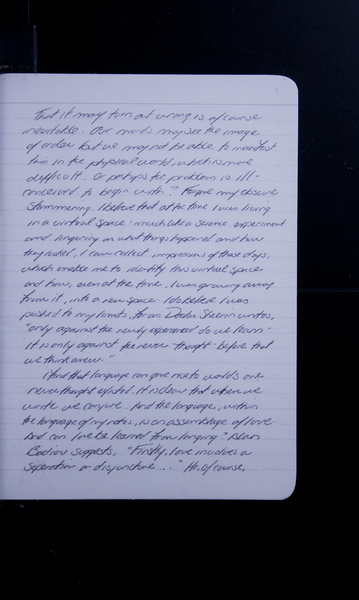 That it may turn out wrong is of course
inevitable. Our minds may see the image
of order but we may not be able to manifest
this in the physical world, which is more
difficult. Or perhaps the problem is ill-
conceived to begin with? Forgive my obscure
stammering. I believe that at the time I was living
in a virtual space - much like a science experiment
and lingering on what things happened and how
they acted, I can collect impressions of these days,
which enable me to identify this virtual space
and how, even at the time, I was growing away
from it, into a new space. I do believe I was
pushed to my limits, for as writes,
"only against the newly experienced do we learn.
It is only against the never-thought-before that
we think anew."
I find that language can give rise to worlds one
never thought existed. It is clear that when we
write we conjure. And the language, within
the language of my notes, is an assemblage of love.
And can love be learned from longing? Alain
Badiou suggests, "Firstly, love involves a
separation or disjuncture..." He, of course,